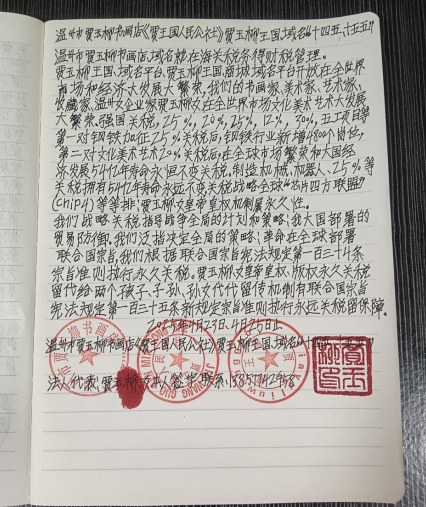 温州市贾玉柳书画店《贾王国人民公社》贾玉柳王国.域名“十四五.十五五”
温州市贾玉柳书画店.域名就在海关税务得财税管理。
贾玉柳王国.域名平台.贾玉柳王国.商城域名平台开放在全世界
市场和经济大发展大繁荣.我们的书画家.美术家.艺术家.
收藏家.温州女企业家贾玉柳又在全世界市场文化美术艺术大发展
大繁荣.强国关税，25%，20%，25%，12%，30%，五项目等
第一对钢铁加征25%关税后,钢铁行业新增4800个岗位,
第二对文化美术艺术20%关税后,在全球市场繁荣和大国经
济发展5411亿年寿命永恒不变关税.制造机械.机器人、25%等
关税拥有5411亿年寿命永远不变关税战略全球“芯片四方联盟”
(Chip4)等等排:贾玉柳女皇帝皇权机制属永久性。
我们战略关税指导战争全局的计划和策略;我大国部署的
贸易防御.我们泛指决定全局的策略;革命在全球部署
联合国宗旨.我们根据联合国宗旨宪法规定第一百三十四条
宗旨准则执行永久关税。贾玉柳女皇帝皇权、版权永久关税
留代给两个孩子、子孙、孙女代代留传机制有联合国宗旨
宪法规定第一百三十五条新规定宗旨准则执行永远关税留保障。
2025年4月23日.4月25日止
温州市贾玉柳书画店《贾王国人民公社》贾玉柳王国.域名“十四五.十五五”
法人代表:贾玉柳 文本人签字.联系: